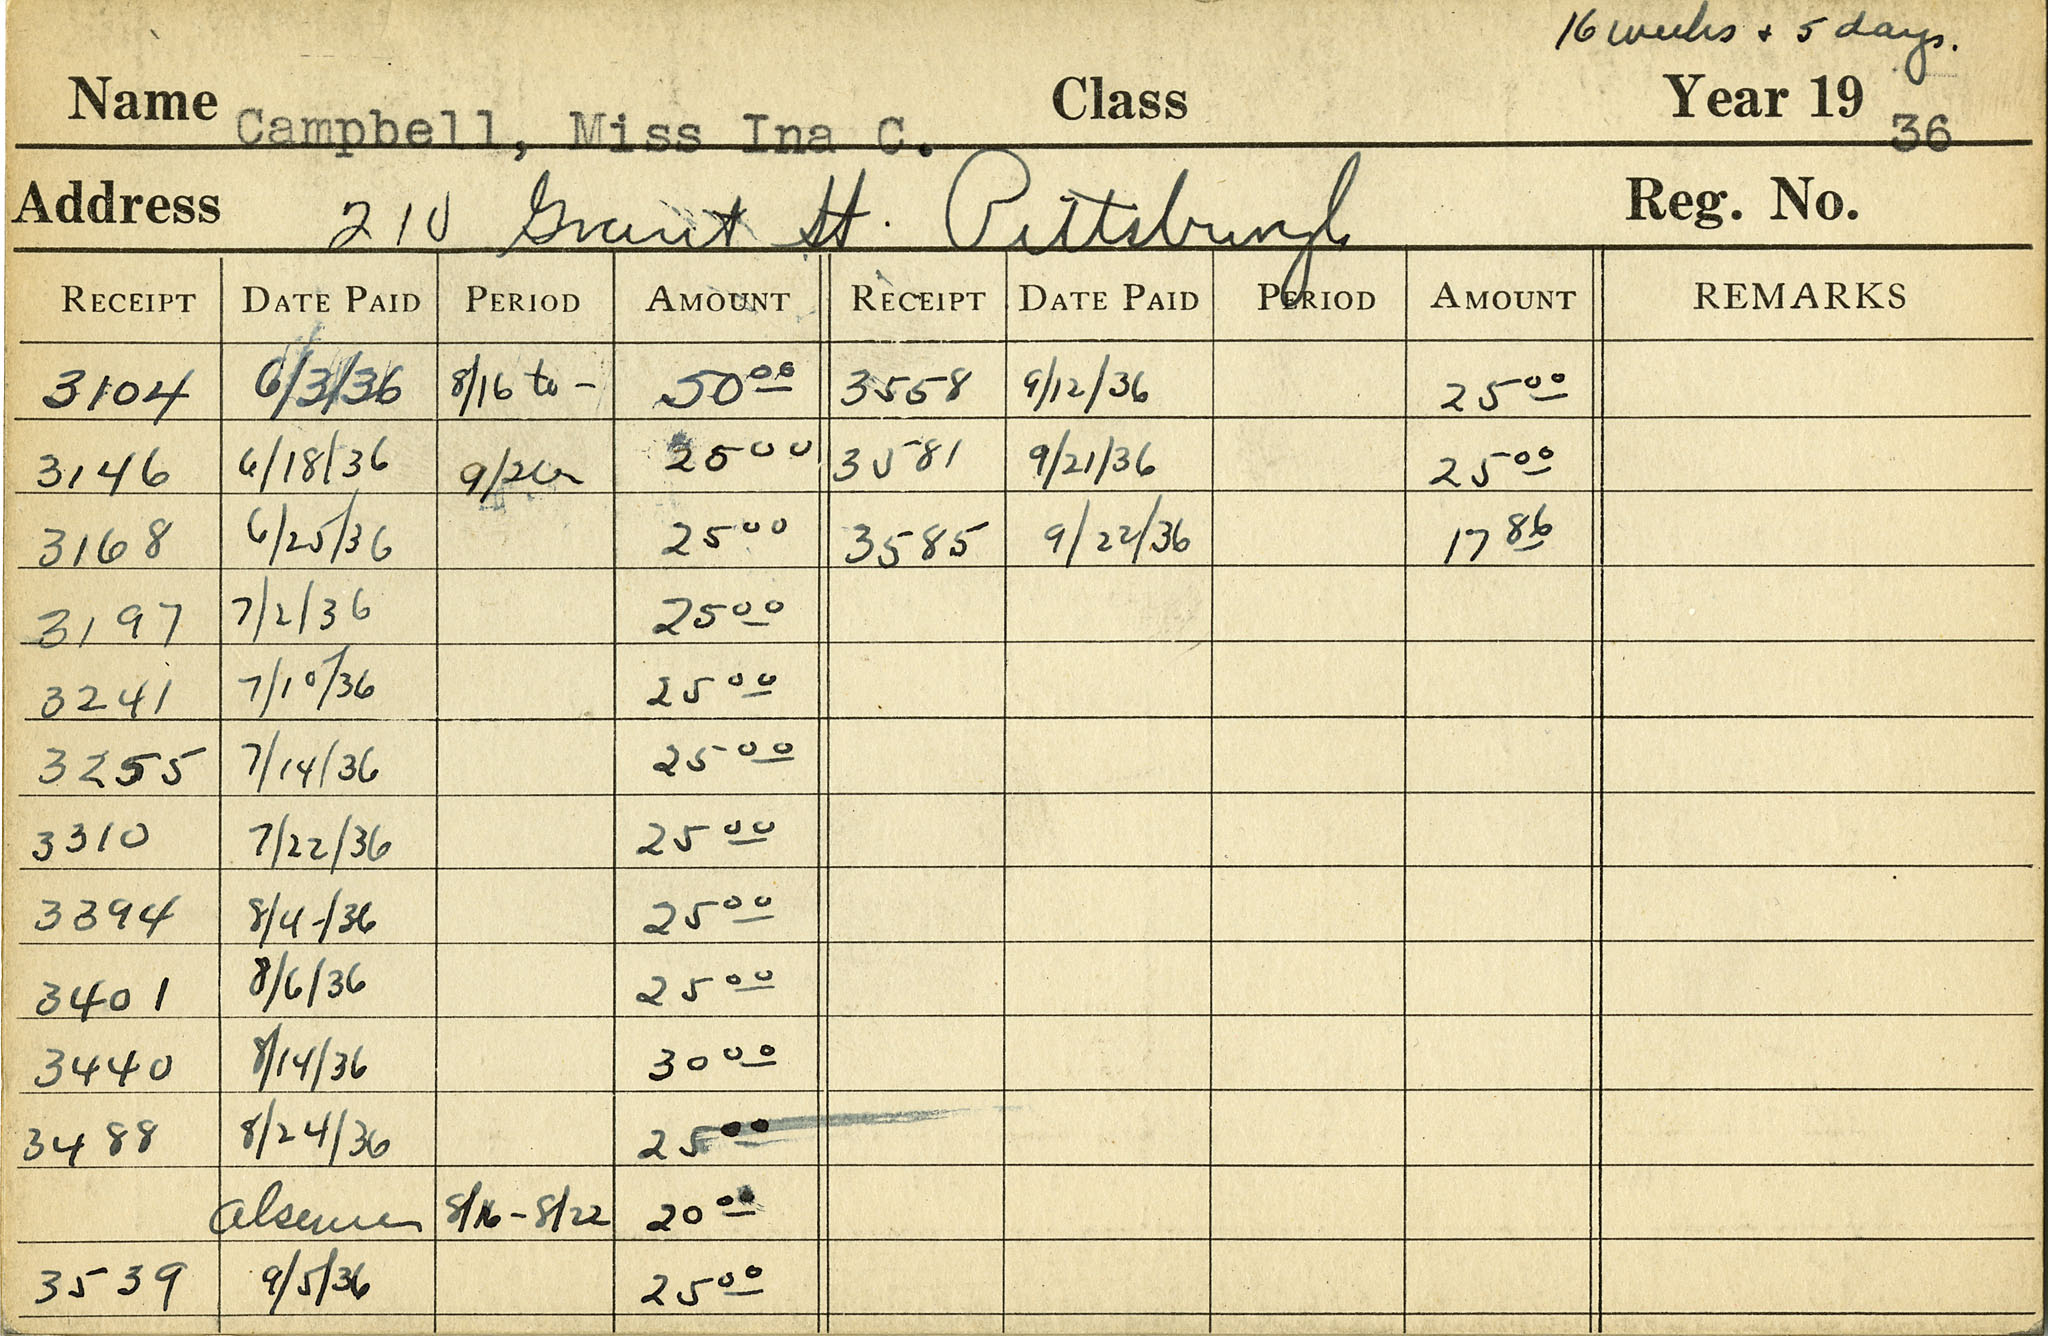 16 weeks + 5 days.
Name Campbell, Miss Ina C. Class Year 19 36
Address 210 Grant St. Pittsburgh Reg. No.
RECEIPT DATE PAID PERIOD AMOUNT RECEIPT DATE PAID PERIOD AMOUNT REMARKS
3104 6/3/36 8/16 to - 50 00 3558 9/12/36 25 00
3146 6/18/36 25 00 3581 9/21/36 25 00
3168 6/25/36 25 00 3585 9/22/36 17 86
3197 7/2/36 25 00
3241 7/10/36 25 00
3255 7/14/36 25 00
3310 7/22/36 25 00
3394 8/4-/36 25 00
3401 8/6/36 25 00
3440 8/14/36 30 00
3488 8/24/36 25 00
absence 8/16-8/22 20 00
3539 9/5/36 25 00